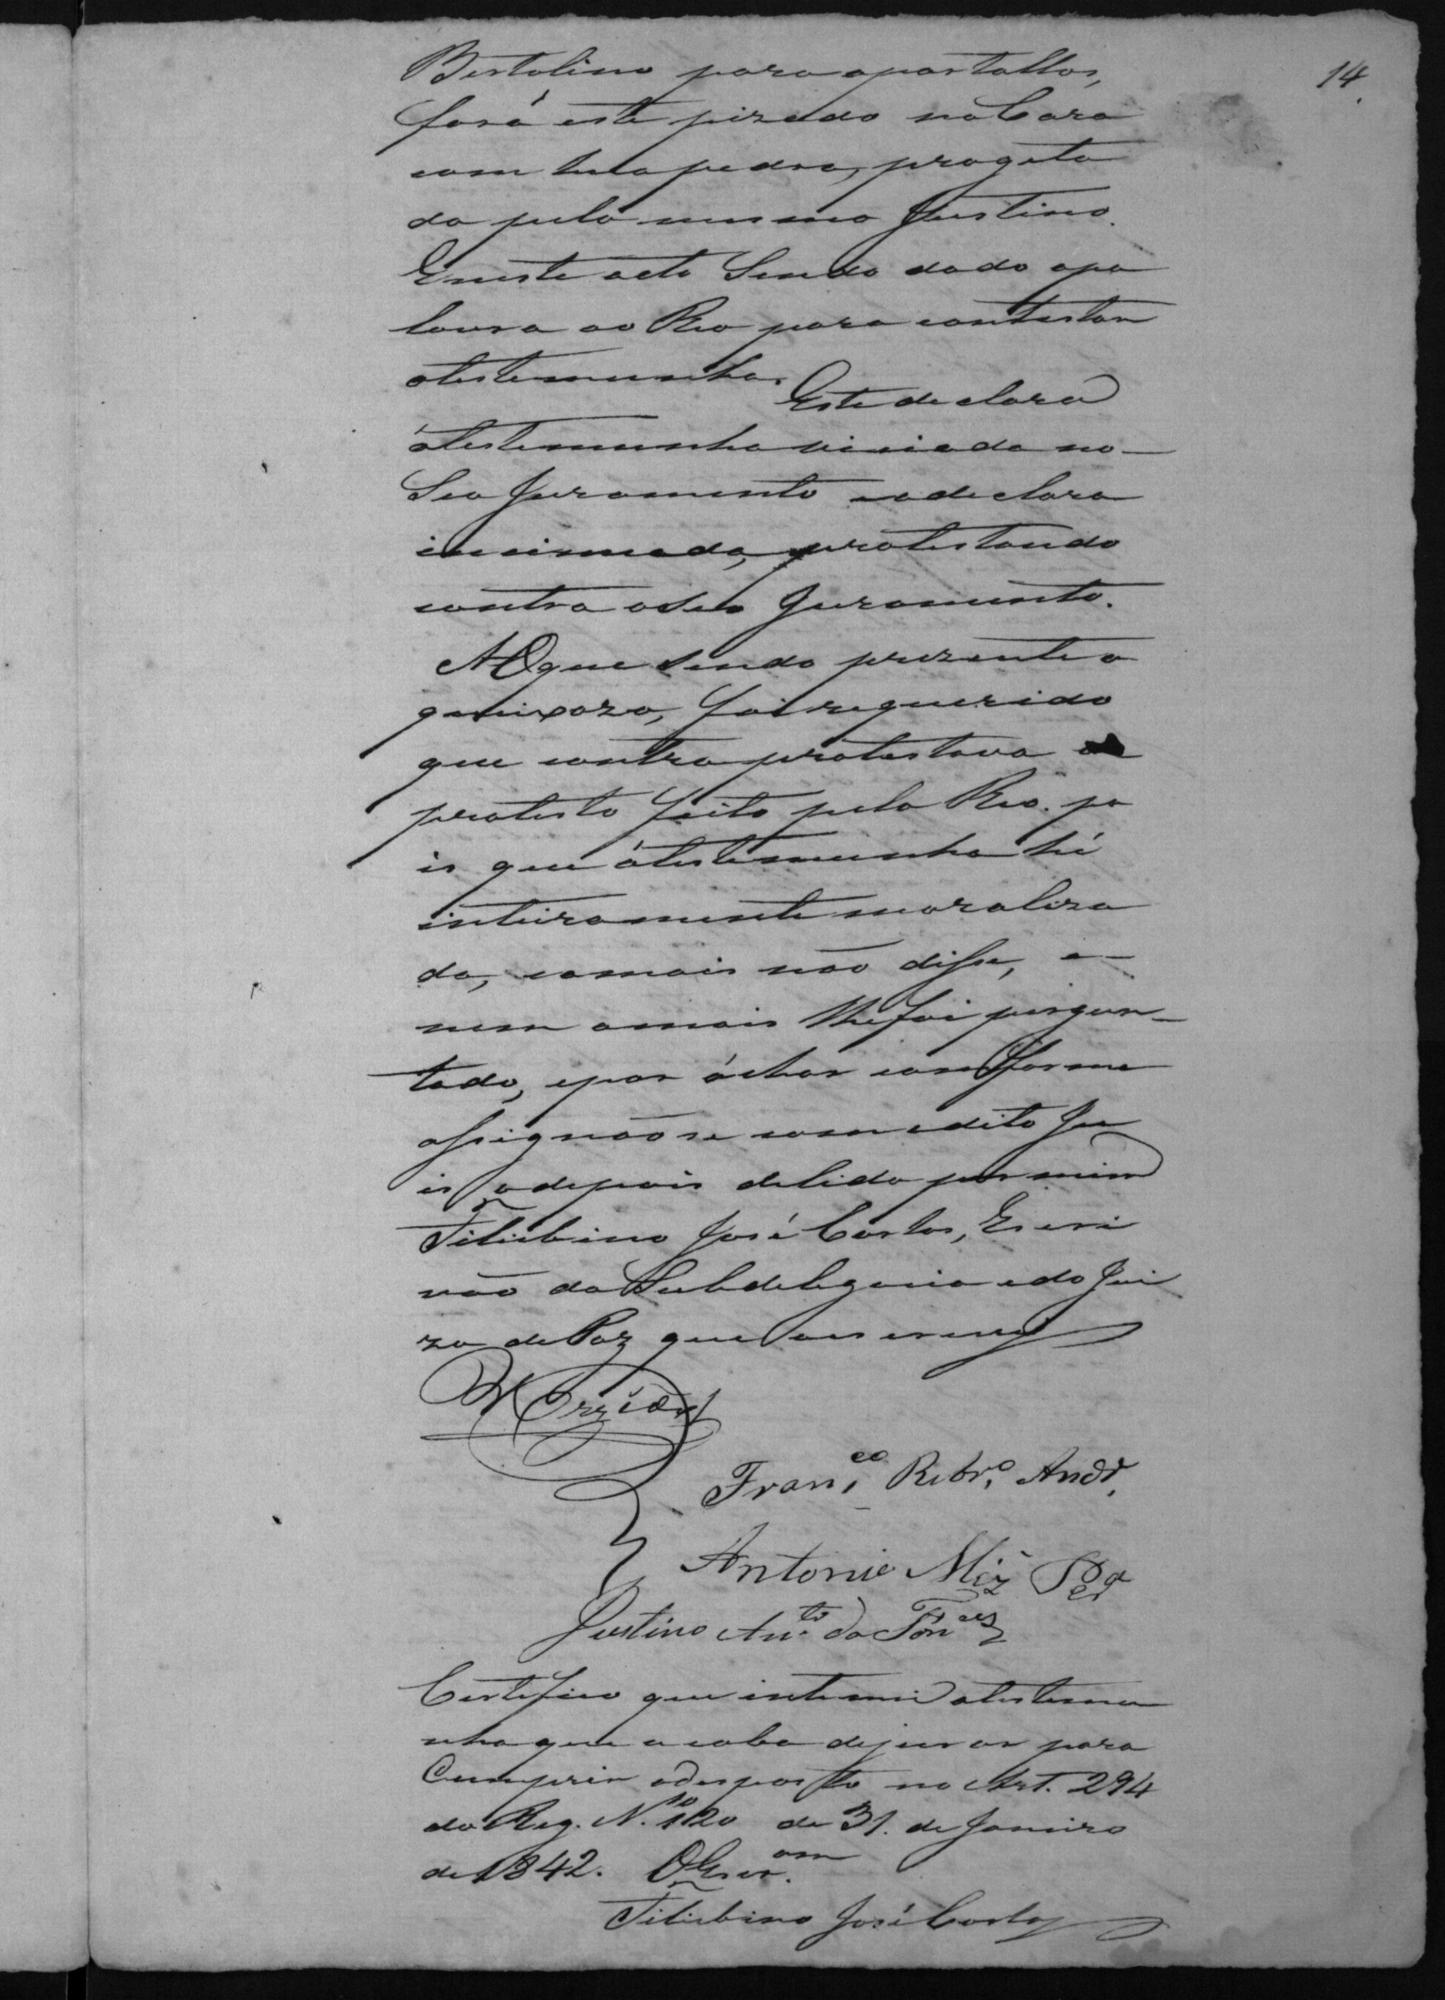 14
Bertolino para apartallos,
fora este pizado na Cara
com huã pedra, progeta
da pelo mesmo Justino.
E neste acto Sendo dado apa
lavra ao Reo para contestar
atestemunha. Este declarou
átestemunha viciada no
Seo Juramento eadeclara
insinuada, protestando
contra oseo Juramento.
Aoque sendo prezente o
queixozo, foi requerido
que contra protestava o
protesto feito pelo Reo. po
is que átestemunha hé
inteiramente moraliza
da, eomais não disse, e
nem omais lhe foi pergun
tado, epor áchar comforme
assignãose com odito Ju
is, e depois delido por mim
José Carlos, Escri
vão da Subdelegacia edo Jui
zo de Paz que oescrevy
Fran.co Ribr.o Andr.
Antonio Miz Per.a
Justino An.to da
Certefico que intemei atestemu
nha que acaba dejurar para
Cumprir odesposto no Art. 294
do Reg. N.o 120 de 31. de Janeiro
de 1842. O Escr.am
José Carlos